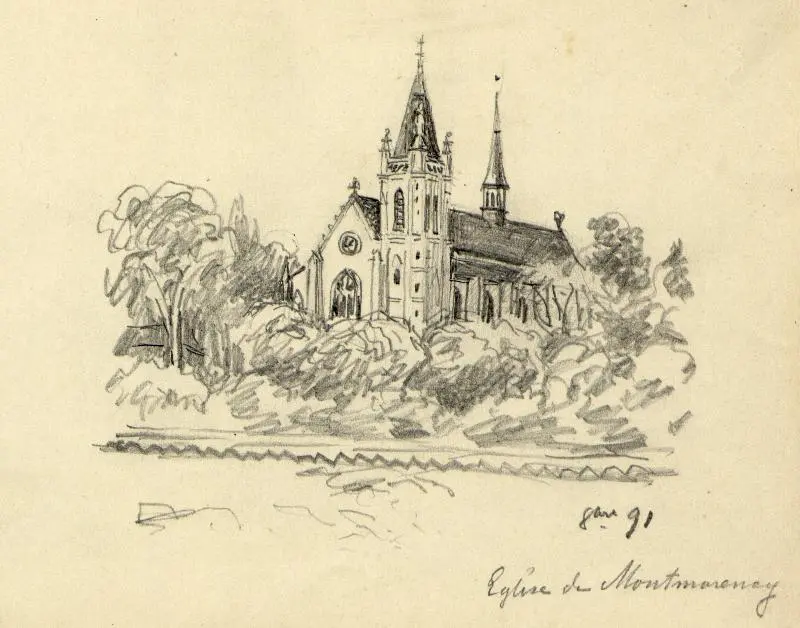 91
Eglise de Montmorency